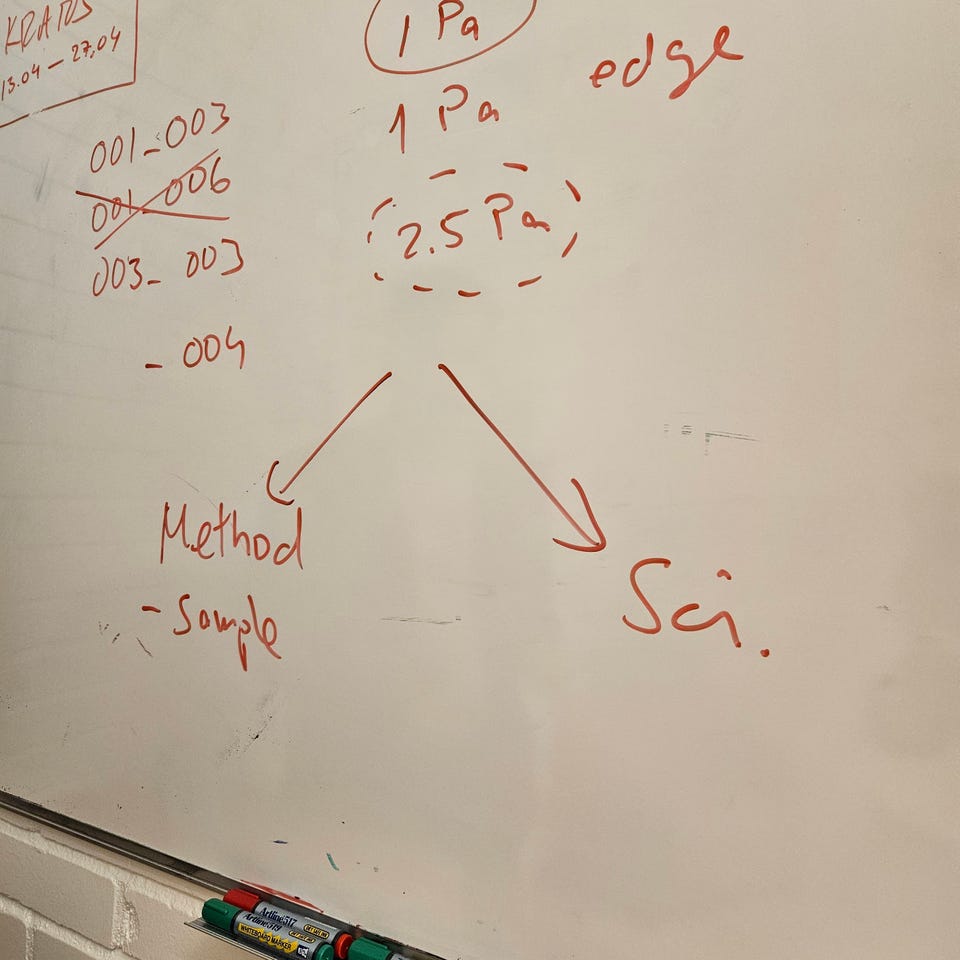 KRATOS
13.04 – 27.04
1 Pa
edge
001_003
1 Pa
001_006
2.5 Pa
003_003
_ 004
Method
- Sample
Sci.
Artline 517
Artline 519
WHITEBOARD MARKER